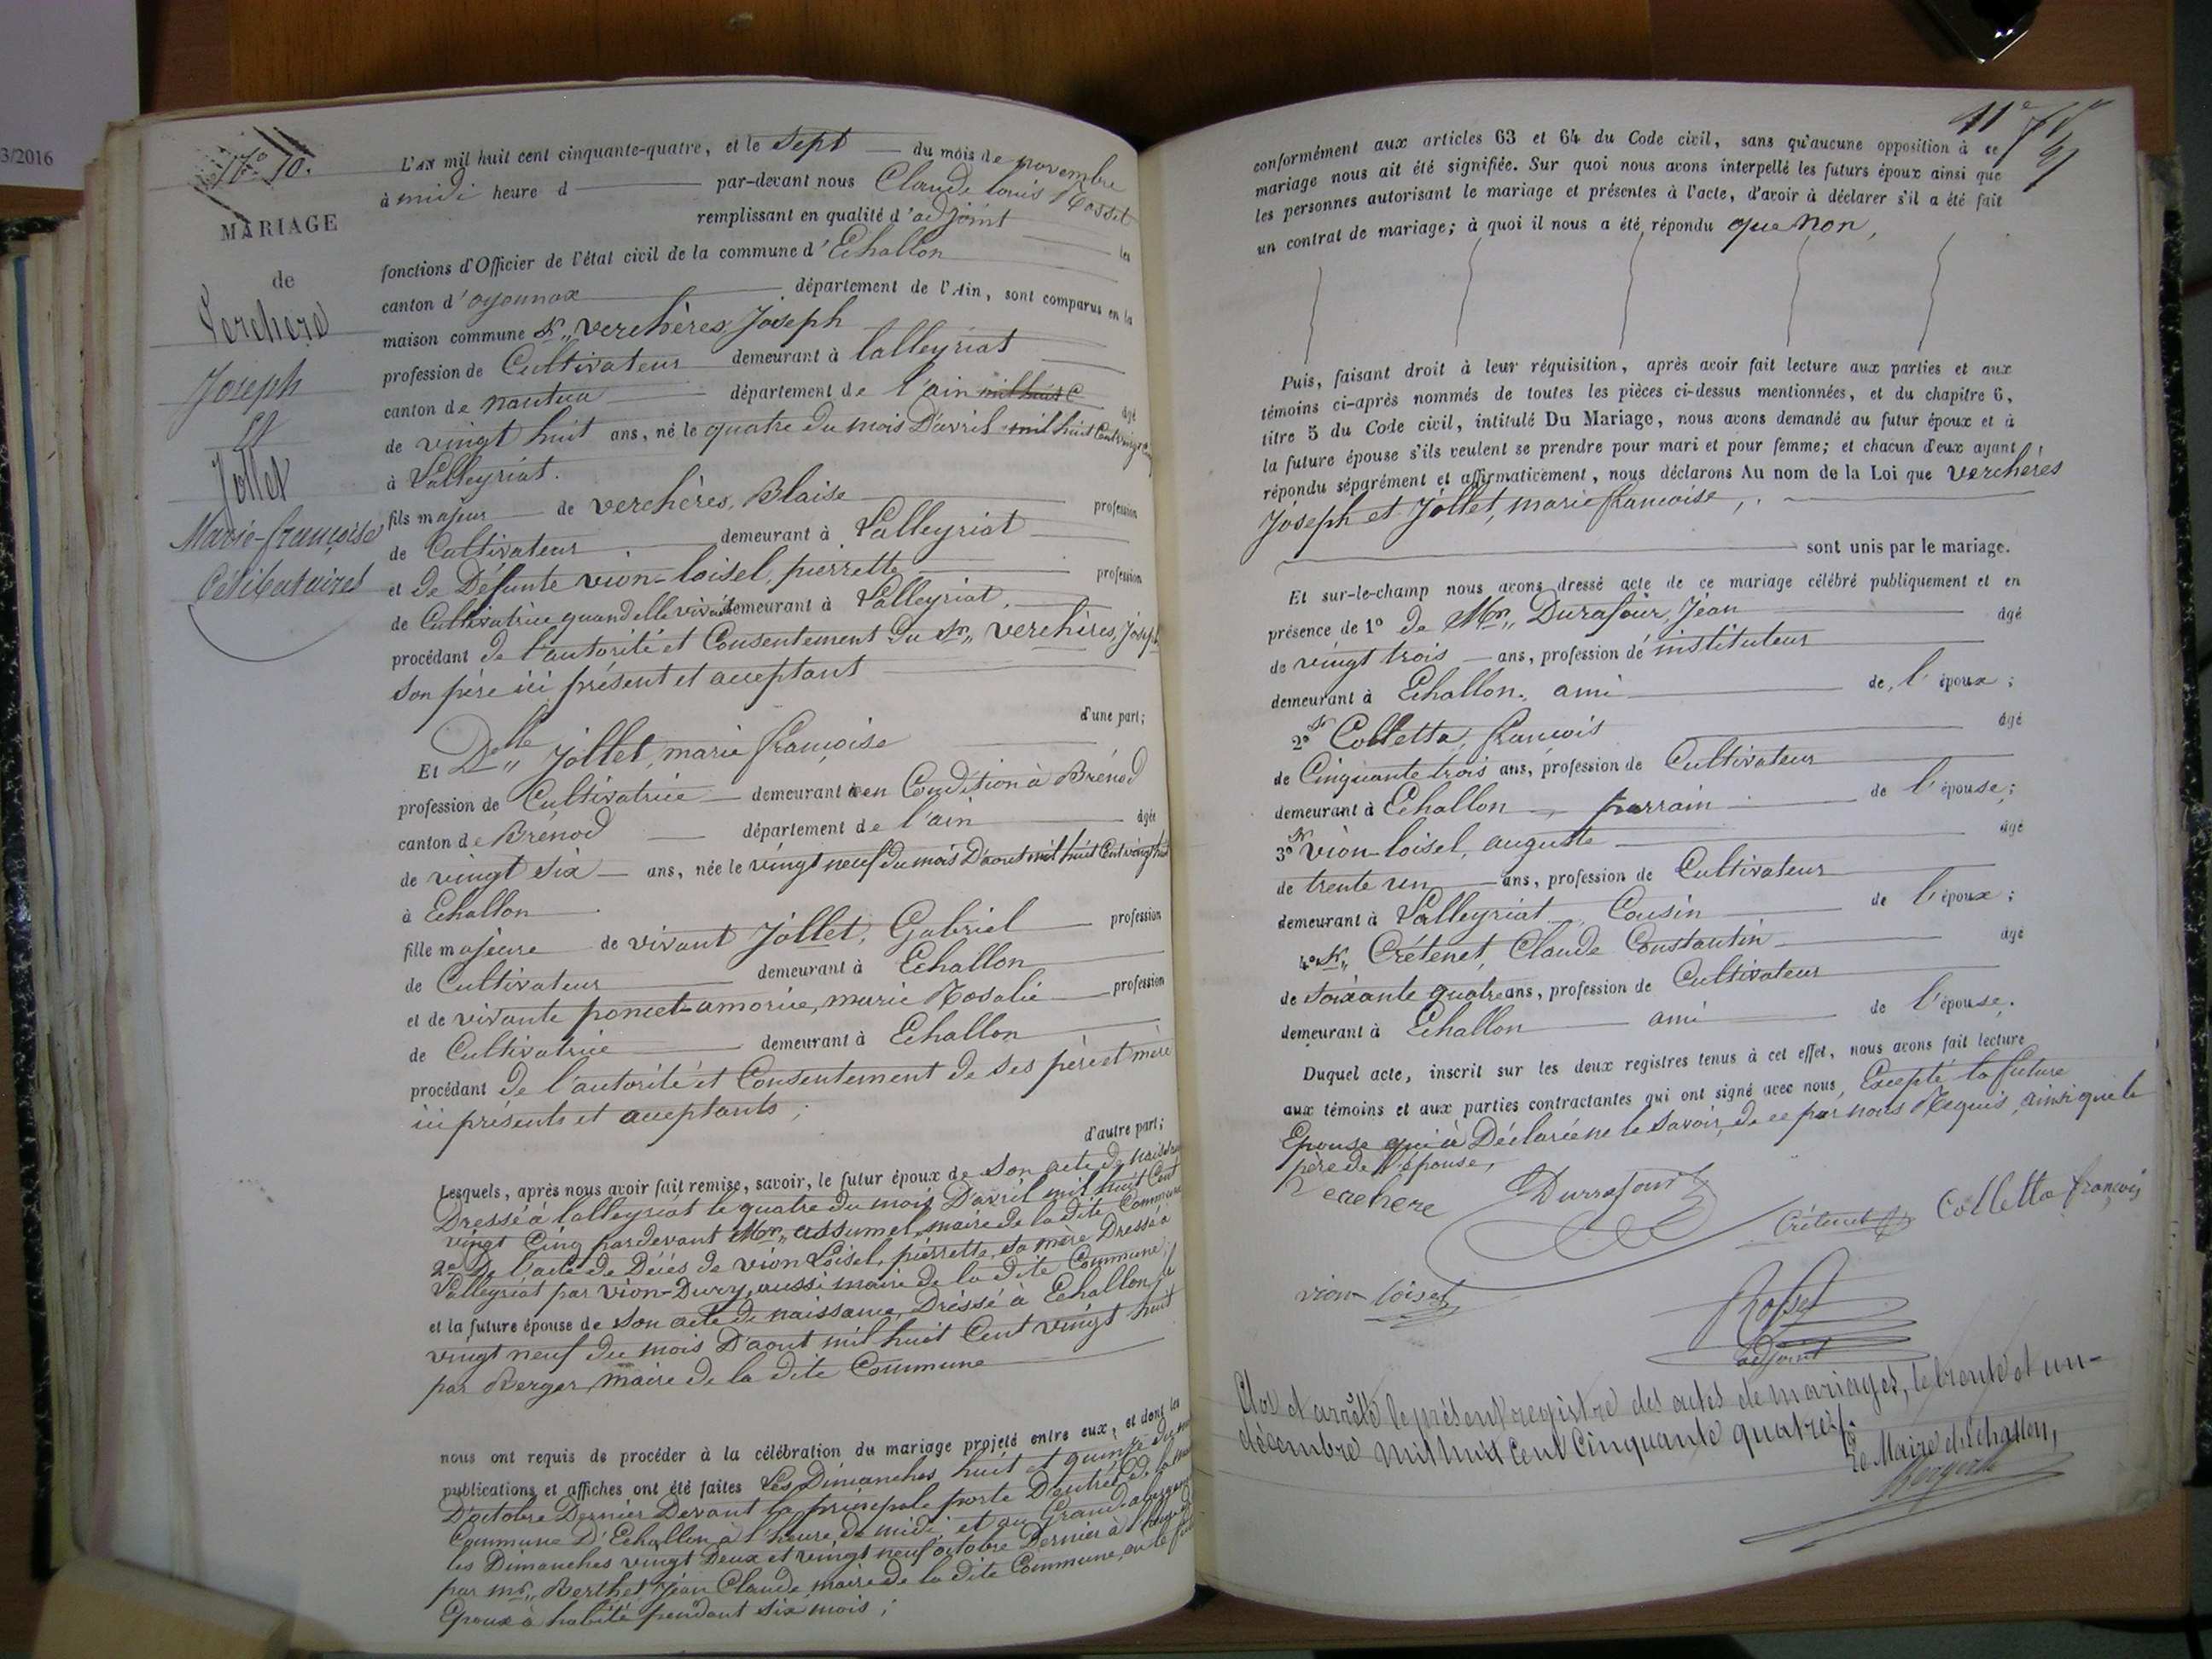 3/2016
N.º 10.
MARIAGE
de
Verchere
Joseph
Et
Jollet
Marie-françoise
Celibataires
L'AN mil huit cent cinquante-quatre, et le Sept du mois de novembre
à midi heure d par-devant nous Claude Louis Rosset
remplissant en qualité d'adjoint les
fonctions d'Officier de l'état civil de la commune d'Echallon
canton d'oyonnax département de l'Ain, sont comparus en la
maison commune Sr. verchères, Joseph
profession de Cultivateur demeurant à lalleyriat
canton de nantua département de l'ain mil huit C âgé
de vingt huit ans, né le quatre du mois D'avril mil huit Cent vingt
à Lalleyriat.
fils majeur de verchères, Blaise profession
de Cultivateur demeurant à Lalleyriat
et de Défunte vion-loisel, pierrette profession
de Cultivatrice quand elle vivait demeurant à Lalleyriat,
procédant de l'autorité et Consentement du Sr. verchères, Joseph
son père ici présent et acceptant
d'une part;
Et Delle Jollet, marie françoise
profession de Cultivatrice demeurant à en Condition à Brénod
canton de Brénod département de l'ain âgée
de vingt six ans, née le vingt neuf du mois D'aout mil huit Cent vingt huit
à Echallon
fille majeure de vivant Jollet, Gabriel profession
de Cultivateur demeurant à Echallon
et de vivante poncet-amorice, marie Rosalie profession
de Cultivatrice demeurant à Echallon
procédant de l'autorité et Consentement de ses père et mère
ici présents et acceptants;
d'autre part;
Lesquels, après nous avoir fait remise, savoir, le futur époux de son acte de naissance
Dressé à lalleyriat le quatre du mois D'avril mil huit Cent
vingt Cinq pardevant Mr. assumel, maire de la dite Commune
2º De l'acte de Décés de vion Loisel, pierrette, sa mère Dressé à
Lalleyriat par vion-Dury, aussi maire de la dite Commune;
et la future épouse de son acte de naissance, Dréssé à Echallon, le
vingt neuf du mois D'aout mil huit Cent vingt huit
par Berger, maire de la dite Commune
nous ont requis de procéder à la célébration du mariage projeté entre eux, et dont les
publications et affiches ont été faites Les Dimanches huit et quinze du mois
D'octobre Dernier Devant la principale porte D'entrée de la maison
Commune D'Echallon à l'heure de midi, et au Grand-abergement
les Dimanches vingt Deux et vingt neuf octobre Dernier à
par mr. Berthet, Jean Claude, maire de la dite Commune, ou le futur
Epoux à habité pendant six mois;
11e
conformément aux articles 63 et 64 du Code civil, sans qu'aucune opposition à ce
mariage nous ait été signifiée. Sur quoi nous avons interpellé les futurs époux ainsi que
les personnes autorisant le mariage et présentes à l'acte, d'avoir à déclarer s'il a été fait
un contrat de mariage; à quoi il nous a été répondu que Non,
Puis, faisant droit à leur réquisition, après avoir fait lecture aux parties et aux
témoins ci-après nommés de toutes les pièces ci-dessus mentionnées, et du chapitre 6,
titre 5 du Code civil, intitulé Du Mariage, nous avons demandé au futur époux et à
la future épouse s'ils veulent se prendre pour mari et pour femme; et chacun d'eux ayant
répondu séparément et affirmativement, nous déclarons Au nom de la Loi que verchères
Joseph et Jollet, marie françoise,
sont unis par le mariage.
Et sur-le-champ nous avons dressé acte de ce mariage célébré publiquement et en
présence de 1º de Mr. Durafour, Jean âgé
de vingt trois ans, profession de instituteur
demeurant à Echallon, ami de l'époux;
2º Sr Colletta, françois âgé
de Cinquante trois ans, profession de Cultivateur
demeurant à Echallon, parrain de l'épouse;
3º Sr vion-loisel, auguste âgé
de trente un ans, profession de Cultivateur
demeurant à Lalleyriat, Cousin de l'époux;
4º Sr. Crétenet, Claude Constantin âgé
de soixante quatre ans, profession de Cultivateur
demeurant à Echallon ami de l'épouse.
Duquel acte, inscrit sur les deux registres tenus à cet effet, nous avons fait lecture
aux témoins et aux parties contractantes qui ont signé avec nous, Excepté la future
Epouse qui à Déclaré ne le savoir, de ce par nous Requis, ainsi que le
père de l'épouse,
Verchere Durrafour Crétenet Colletta françois
vion-loisel
Rosset
adjoint
Clos et arrêté le présent registre des actes de mariages, le trente et un-
décembre mil huit Cent Cinquante quatre
Le Maire d'Echallon,